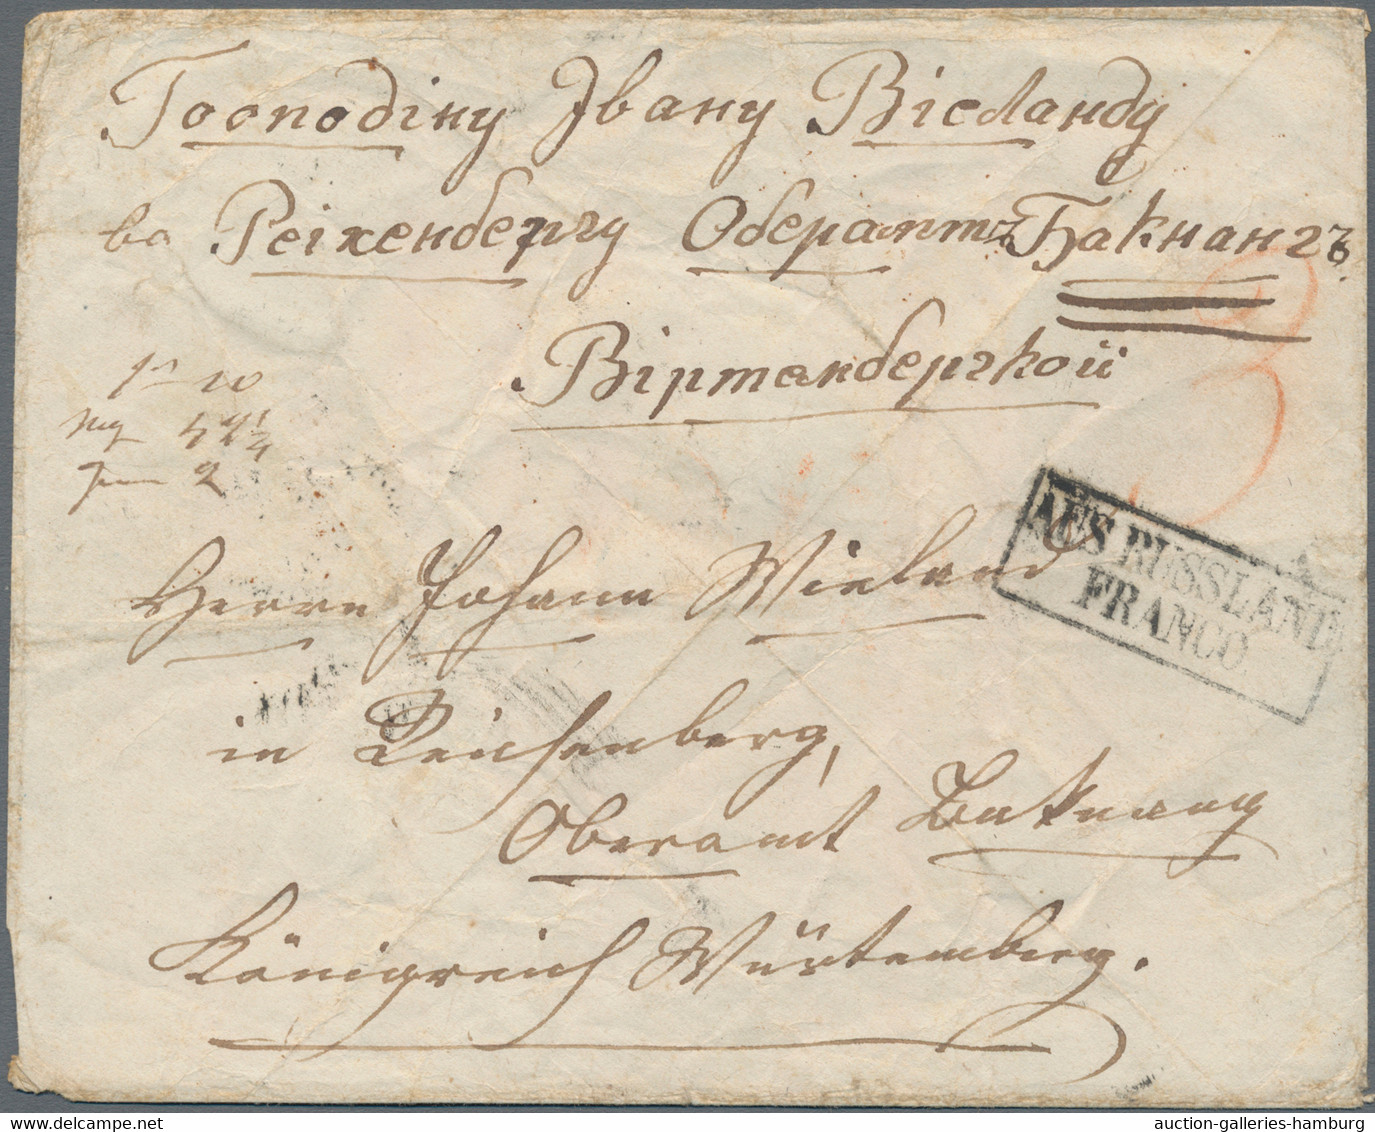 Господіну Івану Віеланду
во Реіхенбергу Оберамтъ Бакнангъ.
Віртенбергкой
3
AUS RUSSLAND
FRANCO
Herrn Johann Wieland
in Reichenberg,
Oberamt Baknang
Königreich Würtemberg.
auction-galleries-hamburg